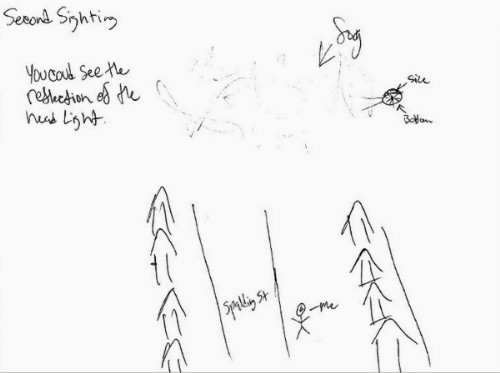 Second Sighting
You could see the
reflection of the
head Light.
fog
Side
Bottom
Spalding St
me